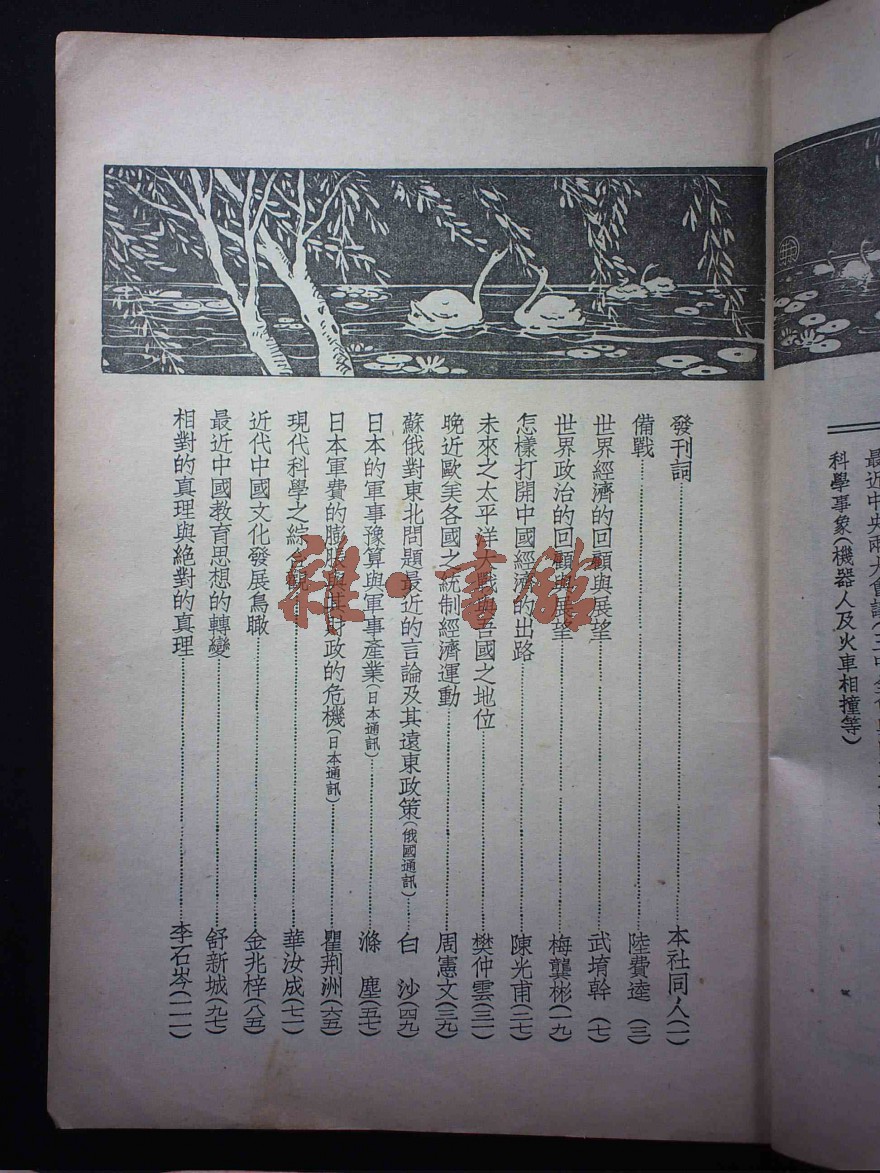 發刊詞……本社同人(一)
備戰……陸費逵(三)
世界經濟的回顧與展望……武堉幹(七)
世界政治的回顧與展望……梅龔彬(一九)
怎樣打開中國經濟的出路……陳光甫(二七)
未來之太平洋大戰與吾國之地位……樊仲雲(三一)
晚近歐美各國之統制經濟運動……周憲文(三九)
蘇俄對東北問題最近的言論及其遠東政策(俄國通訊)……白沙(四九)
日本的軍事豫算與軍事產業(日本通訊)……滌塵(五七)
日本軍費的膨脹與其財政的危機(日本通訊)……瞿荆洲(六五)
現代科學之綜合觀……華汝成(七一)
近代中國文化發展鳥瞰……金兆梓(八五)
最近中國教育思想的轉變……舒新城(九七)
相對的真理與絕對的真理……李石岑(一一一)
最近中央兩大會議
科學事象(機器人及火車相撞等)
雜·書館